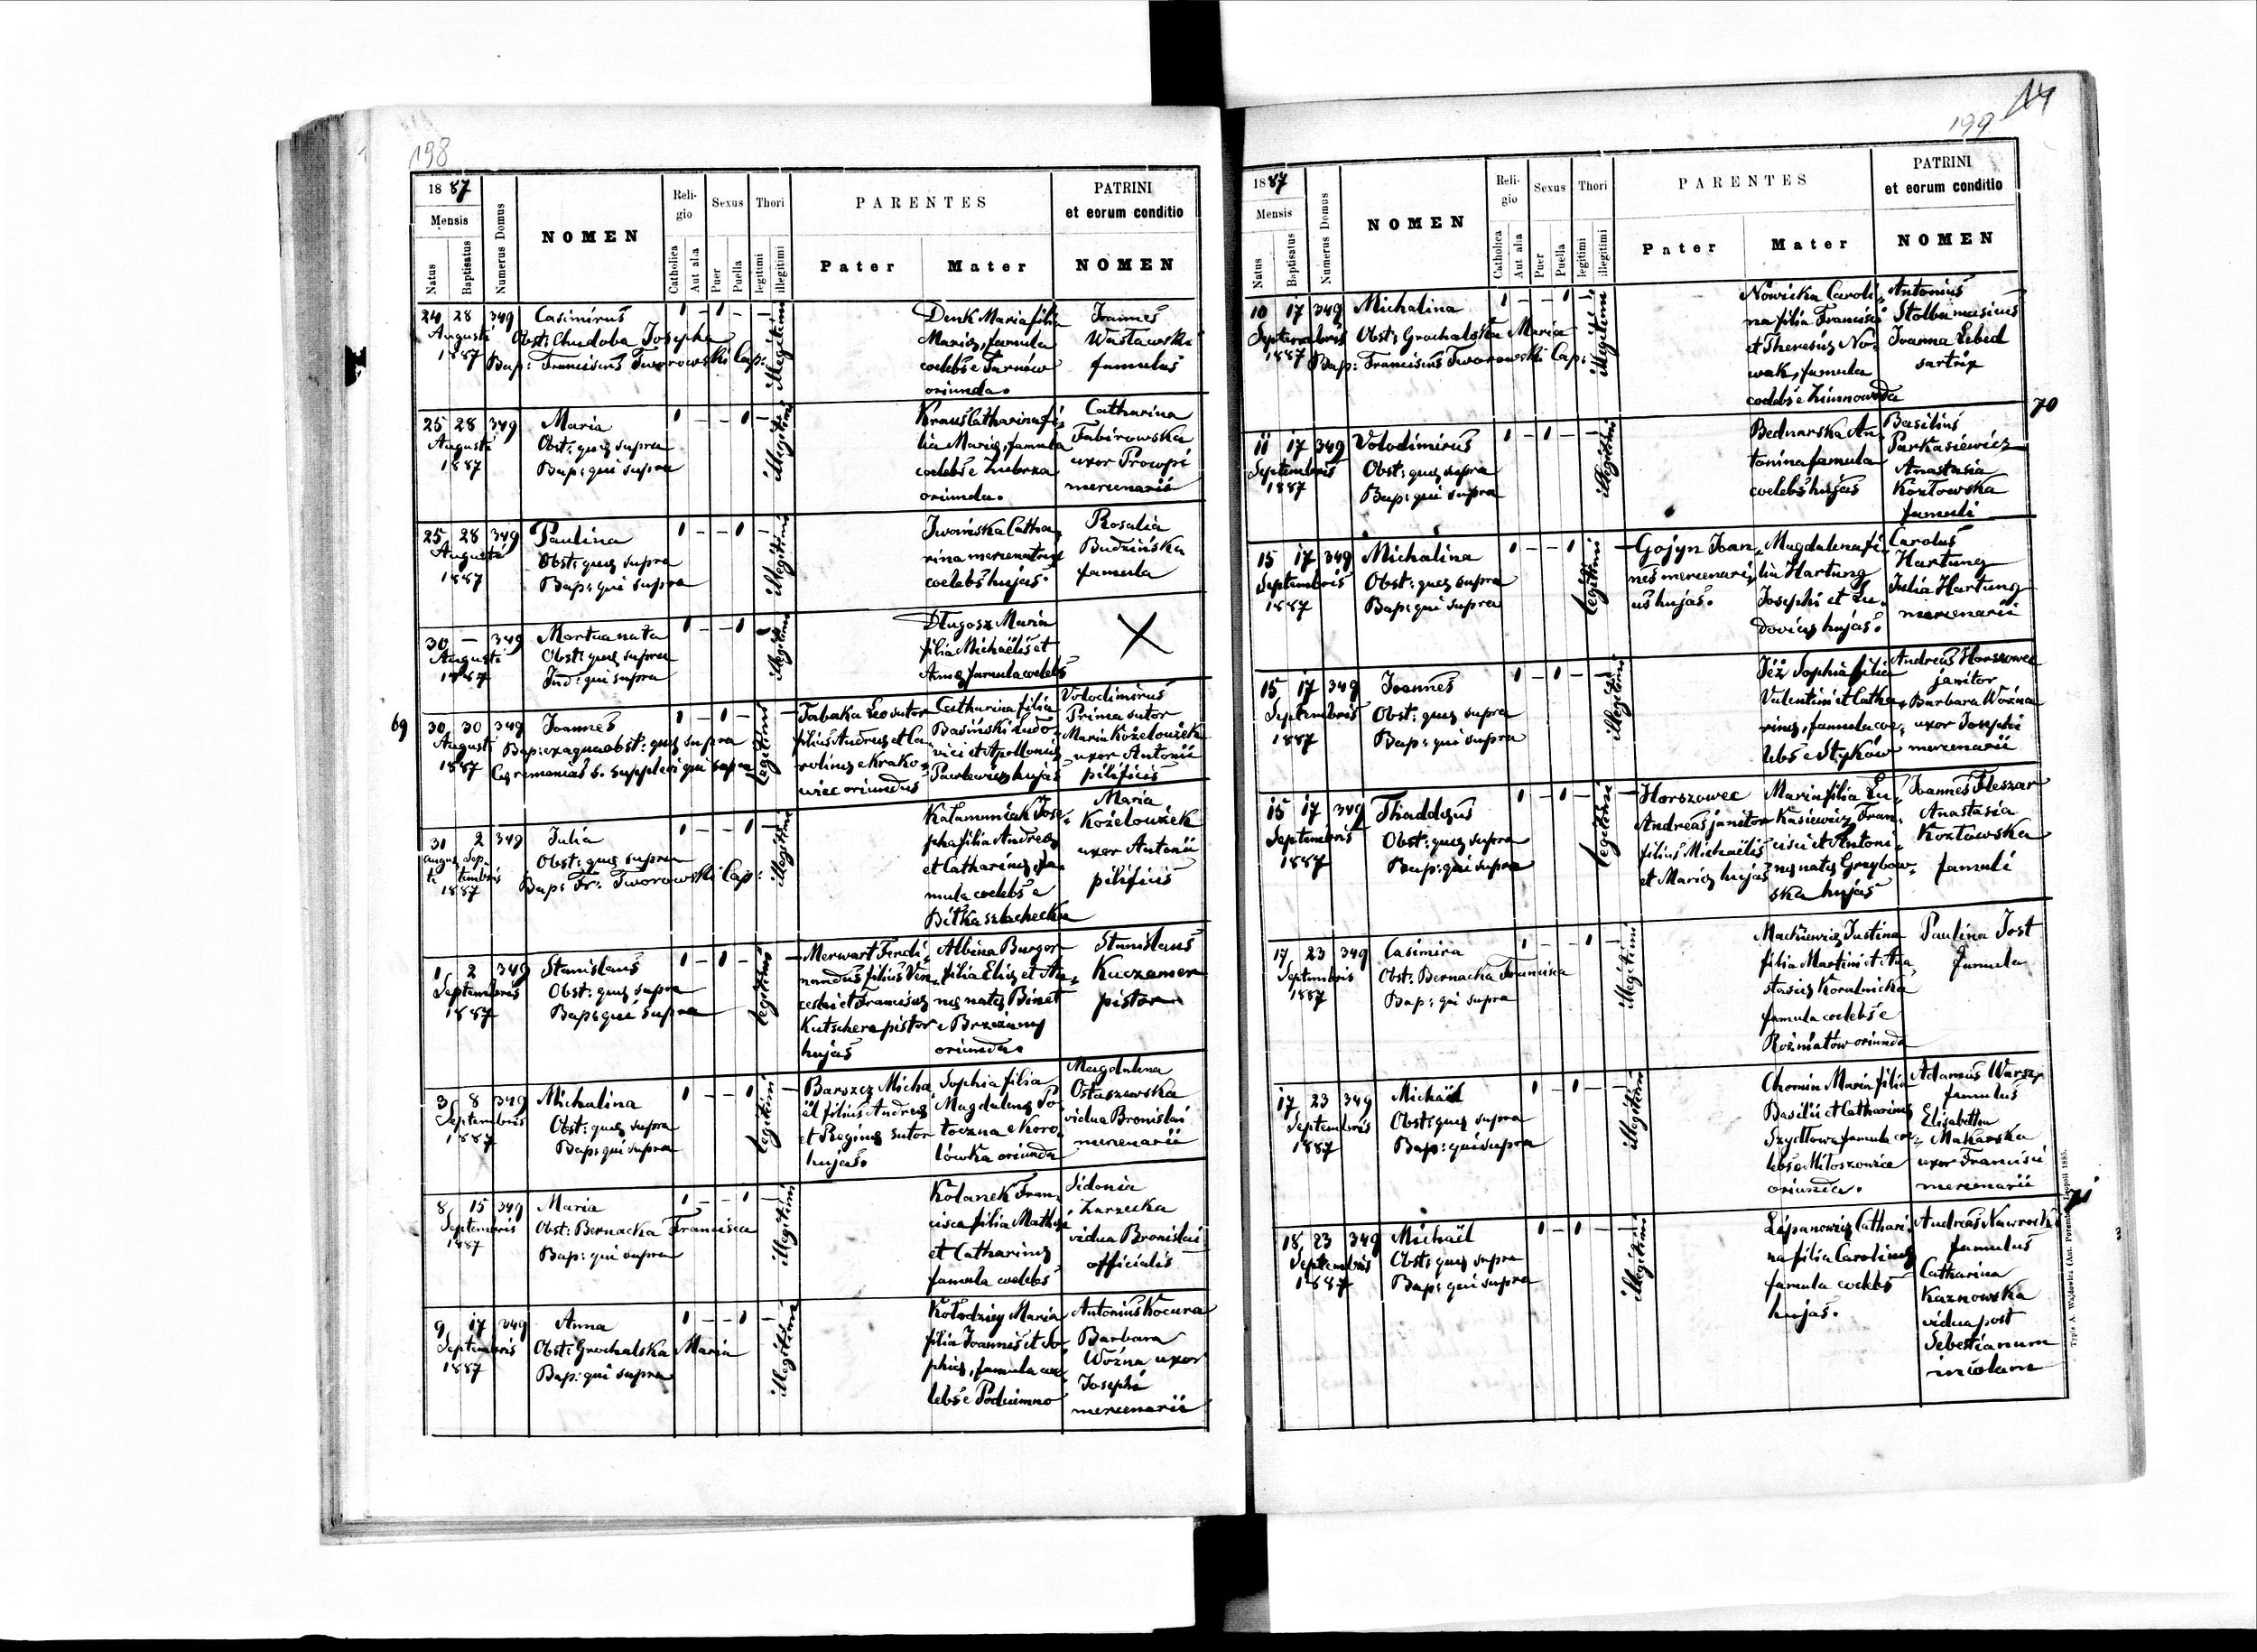 198
18 87
Mensis
Natus
Baptisatus
Numerus Domus
NOMEN
Reli-
gio
Catholica
Aut alia
Sexus
Puer
Puella
Thori
legitimi
illegitimi
PARENTES
Pater
Mater
PATRINI
et eorum conditio
NOMEN
24 28 349 Casimirus
Augusti
1887
Obst: Chudoba Josepha
Bap: Franciscus Tworowski Cap:
illegitimi
Denk Maria filia
Mariæ, famula
coelebs e Tarnów
oriunda.
Joannes
Wasławski
famulus
25 28 349 Maria
Augusti
1887
Obst: quæ supra
Bap: qui supra
illegitimi
Kraus Catharina fi-
lia Mariæ, famula
coelebs e Zubrza
oriunda.
Catharina
Fabirowska
uxor Procopi
mercenarii
25 28 349 Paulina
Augusti
1887
Obst: quæ supra
Bap: qui supra
illegitimi
Iwańska Catha-
rina mercenatrix
coelebs hujas.
Rosalia
Budzińska
famula
30 — 349 Mortua nata
Augusti
1887
Obst: quæ supra
Ind: qui supra
illegitimi
Długosz Maria
filia Michaëlis et
Annæ famula coelebs
69
30 30 349 Joannes
Augusti
1887
Bap: ex aqua obst: quæ supra
Cæremonias s. supplevi qui supra
legitimi
Tabaka Leo sutor
filius Andreæ et Ca-
rolinæ e Krako-
wiec oriundus
Catharina filia
Basiński Ludo-
vici et Apolloniæ
Pawlewicz hujas
Volodimirus
Prima sutor
Maria Kożeloużek
uxor Antonii
pilificis
31 2 349 Julia
Augus-
ti
Sep-
tembris
1887
Obst: quæ supra
Bap: Fr: Tworowski Cap:
illegitimi
Kałamuniak Jose-
pha filia Andreæ
et Catharinæ, fa-
mula coelebs e
Bitka szlachecka
Maria
Kożeloużek
uxor Antonii
pilificis
1 2 349 Stanislaus
Septembris
1887
Obst: quæ supra
Bap: qui supra
legitimi
Merwart Ferdi-
nandus filius Ven-
ceslai et Franciscæ
Kutschera pistor
hujas
Albina Burger
filia Eliæ et An-
næ natæ Binet
e Brzeżany
oriunda.
Stanislaus
Kuczamer
pistor
3 8 349 Michalina
Septembris
1887
Obst: quæ supra
Bap: qui supra
legitimi
Barszcz Micha
ël filius Andreæ
et Reginæ sutor
hujas.
Sophia filia
Magdalenæ Po-
toczna e Koro-
lówka oriunda
Magdalena
Ostaszewska
vidua Bronislai
mercenarii
8 15 349 Maria
Septembris
1887
Obst: Bernacka Francisca
Bap: qui supra
illegitimi
Kolanek Fran-
cisca filia Mathiæ
et Catharinæ
famula coelebs
Sidonia
Zarzecka
vidua Bronislai
officialis
9 17 349 Anna
Septembris
1887
Obst: Grochalska Maria
Bap: qui supra
illegitimi
Kołodziej Maria
filia Joannis et So-
phiæ, famula coe-
lebs e Podciemno
Antonius Kocura
Barbara
Woźna uxor
Josephi
mercenarii
199
18 87
Mensis
Natus
Baptisatus
Numerus Domus
NOMEN
Reli-
gio
Catholica
Aut alia
Sexus
Puer
Puella
Thori
legitimi
illegitimi
PARENTES
Pater
Mater
PATRINI
et eorum conditio
NOMEN
10 17 349 Michalina
Septembris
1887
Obst: Grochalska Maria
Bap: Franciscus Tworowski Cap:
illegitimi
Nowicka Caroli-
na filia Francisci
et Theresiæ No-
wak, famula
coelebs e Zimnowoda
Antonius
Stolbumasius
Joanna Łebed
sartrix
70
11 17 349 Volodimirus
Septembris
1887
Obst: quæ supra
Bap: qui supra
illegitimi
Bednarska An-
tonina famula
coelebs hujas
Basilius
Parkasiewicz
Anastasia
Kozłowska
famuli
15 17 349 Michalina
Septembris
1887
Obst: quæ supra
Bap: qui supra
legitimi
Gojyn Joan-
nes mercenari-
us hujas.
Magdalena fi-
lia Hartung
Josephi et Lu-
doviciæ hujas.
Carolus
Hartung
Julia Hartung
mercenarii
15 17 349 Joannes
Septembris
1887
Obst: quæ supra
Bap: qui supra
illegitimi
Jéż Sophia filia
Valentini et Catha-
rinæ, famula coe-
lebs e Styków
Andreas Horszowec
janitor
Barbara Woźna
uxor Josephi
mercenarii
15 17 349 Thaddeus
Septembris
1887
Obst: quæ supra
Bap: qui supra
legitimi
Horszowec
Andreas janitor
filius Michaëlis
et Mariæ hujas
Maria filia Lu-
kasiewicz Fran-
cisci et Antoni-
næ natæ Grzybow-
ska hujas
Joannes Fleszar
Anastasia
Kozłowska
famuli
17 23 349 Casimira
Septembris
1887
Obst: Bernacka Francisca
Bap: qui supra
illegitimi
Mackiewicz Justina
filia Martini et Ana-
stasiæ Koralnicka
famula coelebs e
Rożniatów oriunda
Paulina Jost
famula
17 23 349 Michaël
Septembris
1887
Obst: quæ supra
Bap: qui supra
illegitimi
Chomin Maria filia
Basilii et Catharinæ
Szydłowa famula coe-
lebs e Miłoszowice
oriunda.
Adamus Warsz
famulus
Elisabetha
Makarska
uxor Francisci
mercenarii
71
18 23 349 Michaël
Septembris
1887
Obst: quæ supra
Bap: qui supra
illegitimi
Lipanowicz Cathari-
na filia Carolinæ
famula coelebs
hujas.
Andreas Nawrocki
famulus
Catharina
Kaznowska
vidua post
Sebestianum
incolam